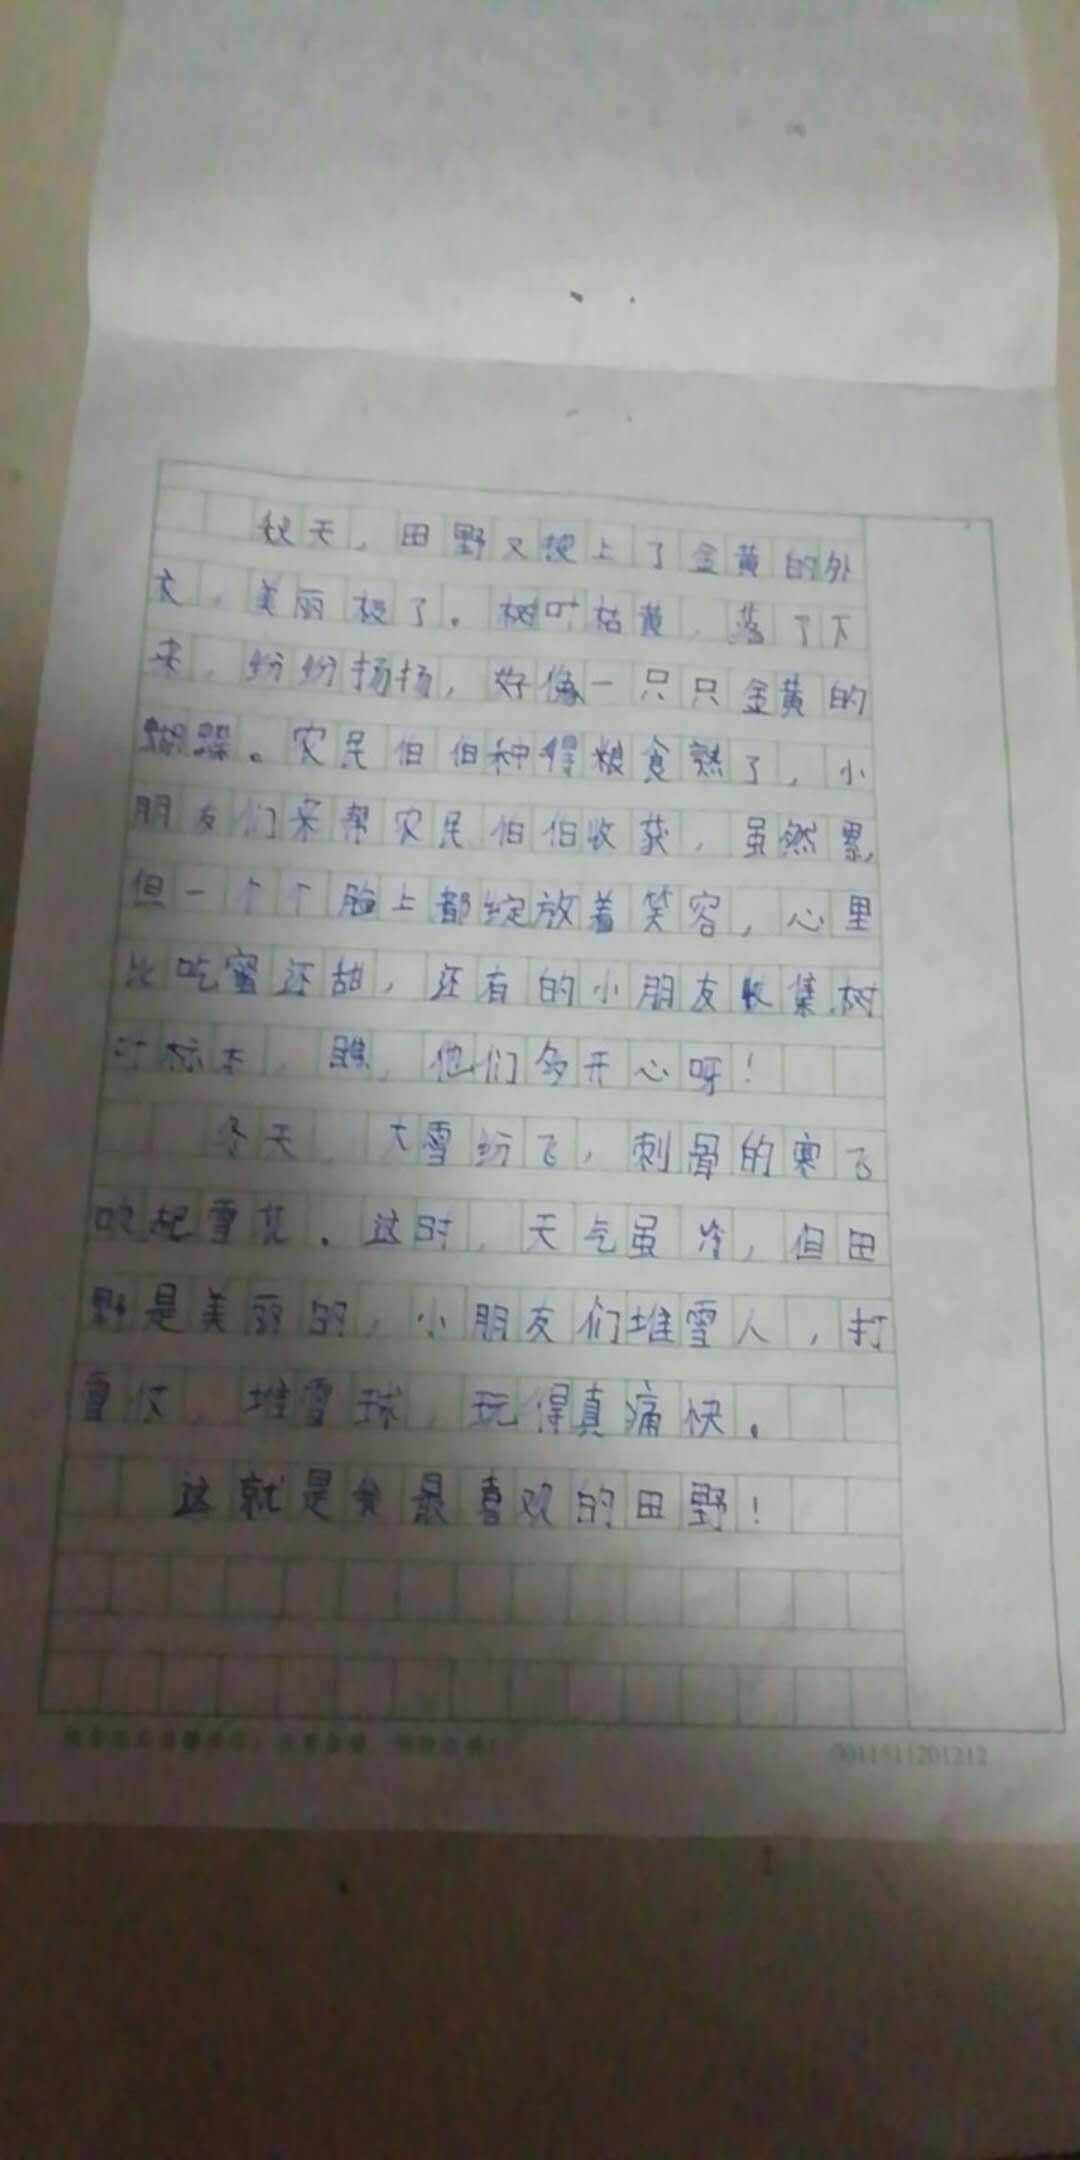 秋天，田野又换上了金黄的外
衣，美丽极了。树叶枯黄，落了下
来，纷纷扬扬，好像一只只金黄的
蝴蝶。农民伯伯种得粮食熟了，小
朋友们来帮农民伯伯收获，虽然累，
但一个个脸上都绽放着笑容，心里
比吃蜜还甜，还有的小朋友收集树
叶标本，瞧，他们多开心呀！
冬天，大雪纷飞，刺骨的寒飞
吹起雪花。这时，天气虽冷，但田
野是美丽的，小朋友们堆雪人，打
雪仗，堆雪球，玩得真痛快。
这就是我最喜欢的田野！
0011511201212